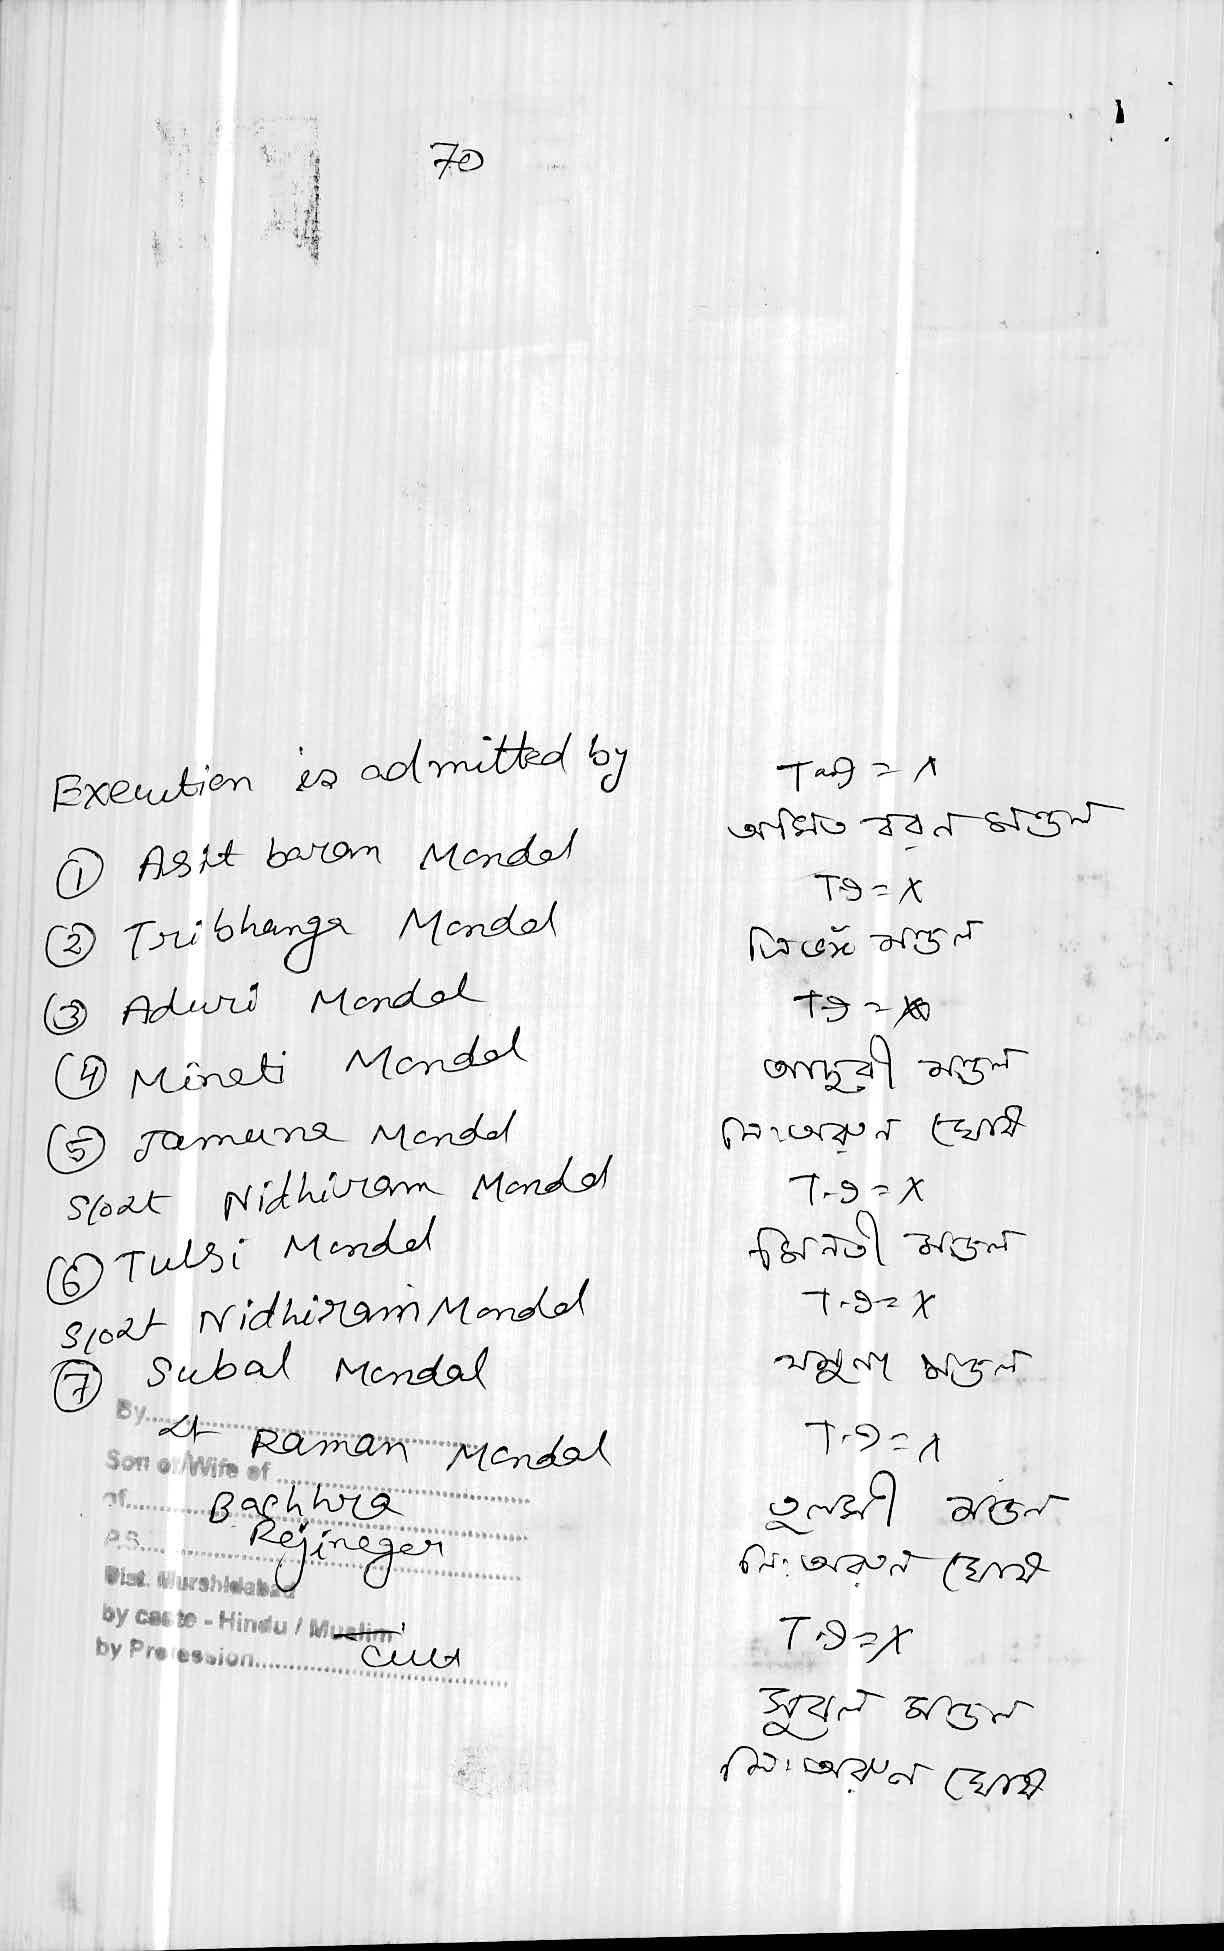 70
Execution is admitted by
① Asit baran Mondal
② Tribhanga Mondal
③ Aduri Mondal
④ Mineti Mondal
⑤ Jamuna Mondal
Nidhiram Mondal
⑥ Tulsi Mondal
Nidhiram Mondal
⑦ Subal Mondal
By
Lt Raman Mondal
Son of/Wife of
of Bachhra
P.S. Rejinagar
Dist. Murshidabad
by caste - Hindu / Muslim
by Profession
অসিত বরন মন্ডল
T.I = X
ত্রিভঙ্গ মন্ডল
T.I = X
আদুরী মন্ডল
নিঃ অরুন ঘোষ
T.I = X
মিনতী মন্ডল
T.I = X
যমুনা মন্ডল
T.I = X
তুলসী মন্ডল
নিঃ অরুন ঘোষ
T.I = X
সুবল মন্ডল
নিঃ অরুন ঘোষ